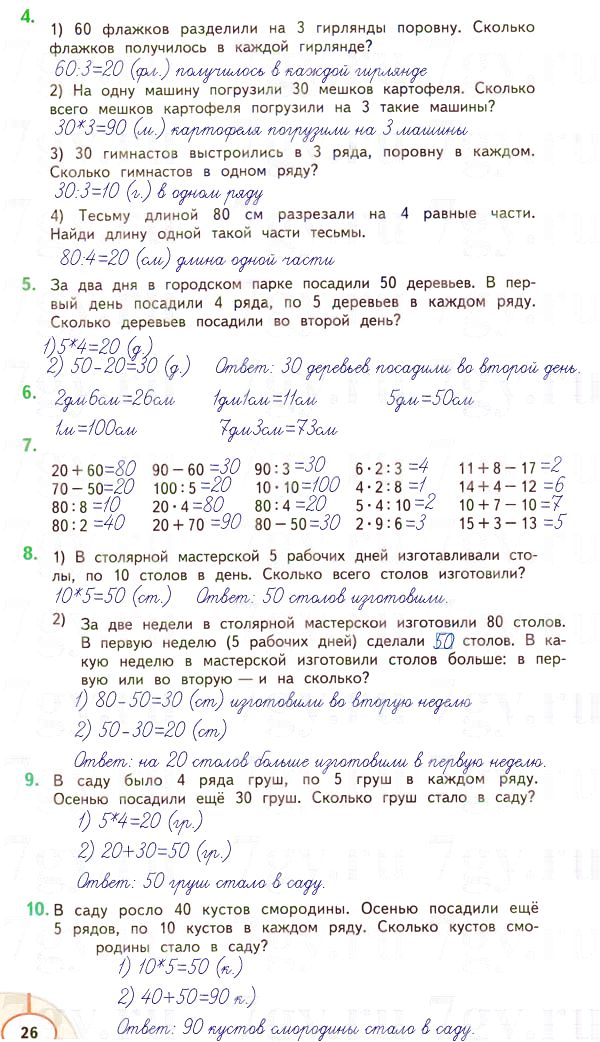 4.
1) 60 флажков разделили на 3 гирлянды поровну. Сколько
флажков получилось в каждой гирлянде?
60:3=20 (фл.) получилось в каждой гирлянде
2) На одну машину погрузили 30 мешков картофеля. Сколько
всего мешков картофеля погрузили на 3 такие машины?
30*3=90 (м.) картофеля погрузили на 3 машины
3) 30 гимнастов выстроились в 3 ряда, поровну в каждом.
Сколько гимнастов в одном ряду?
30:3=10 (г.) в одном ряду
4) Тесьму длиной 80 см разрезали на 4 равные части.
Найди длину одной такой части тесьмы.
80:4=20 (см) длина одной части
5. За два дня в городском парке посадили 50 деревьев. В пер-
вый день посадили 4 ряда, по 5 деревьев в каждом ряду.
Сколько деревьев посадили во второй день?
1)5*4=20 (д.)
2) 50-20=30 (д.) Ответ: 30 деревьев посадили во второй день.
6. 2дм6см=26см 1дм1см=11см 5дм=50см
1м=100см 7дм3см=73см
7.
20+60=80 90-60=30 90:3=30 6·2:3=4 11+8-17=2
70-50=20 100:5=20 10·10=100 4·2:8=1 14+4-12=6
80:8=10 20·4=80 80:4=20 5·4:10=2 10+7-10=7
80:2=40 20+70=90 80-50=30 2·9:6=3 15+3-13=5
8. 1) В столярной мастерской 5 рабочих дней изготавливали сто-
лы, по 10 столов в день. Сколько всего столов изготовили?
10*5=50 (ст.) Ответ: 50 столов изготовили.
2) За две недели в столярной мастерской изготовили 80 столов.
В первую неделю (5 рабочих дней) сделали 50 столов. В ка-
кую неделю в мастерской изготовили столов больше: в пер-
вую или во вторую — и на сколько?
1) 80-50=30 (ст) изготовили во вторую неделю
2) 50-30=20 (ст)
Ответ: на 20 столов больше изготовили в первую неделю.
9. В саду было 4 ряда груш, по 5 груш в каждом ряду.
Осенью посадили ещё 30 груш. Сколько груш стало в саду?
1) 5*4=20 (гр.)
2) 20+30=50 (гр.)
Ответ: 50 груш стало в саду.
10. В саду росло 40 кустов смородины. Осенью посадили ещё
5 рядов, по 10 кустов в каждом ряду. Сколько кустов смо-
родины стало в саду?
1) 10*5=50 (к.)
2) 40+50=90 к.)
Ответ: 90 кустов смородины стало в саду.
26